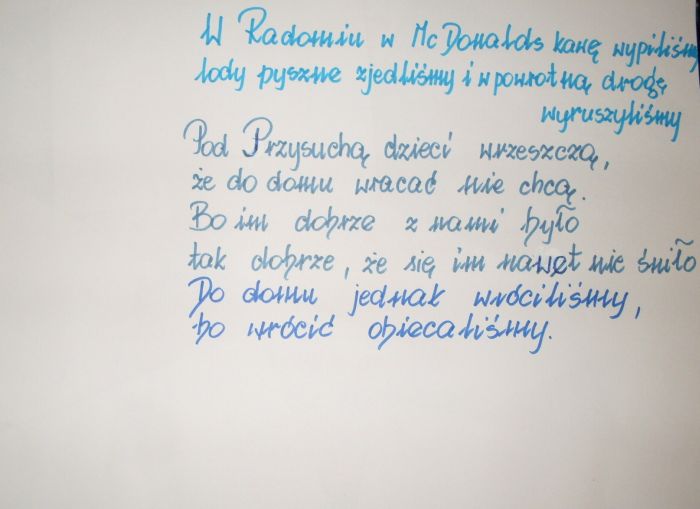 W Radomiu w McDonalds kawę wypiliśmy
lody pyszne zjedliśmy i w powrotną drogę
wyruszyliśmy
Pod Przysuchą dzieci wrzeszczą,
że do domu wracać nie chcą.
Bo im dobrze z nami było
tak dobrze, że się im nawet nie śniło
Do domu jednak wróciliśmy,
bo wrócić obiecaliśmy.